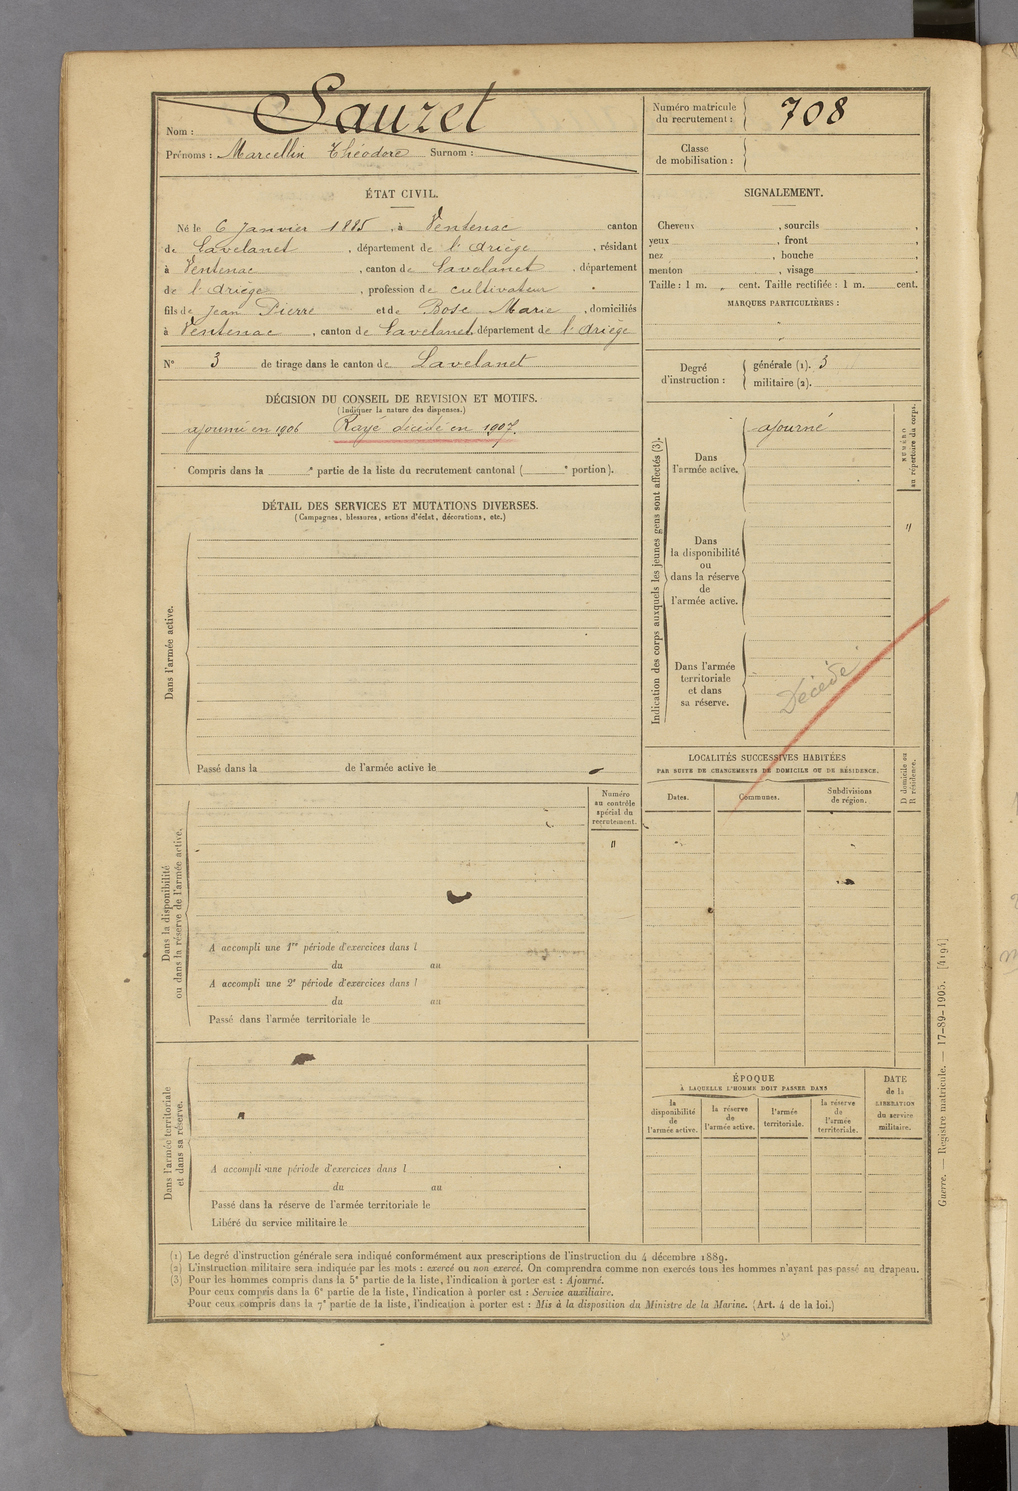 Nom : Sauzet
Prénoms : Marcellin Théodore Surnom :
Numéro matricule
du recrutement : 708
Classe
de mobilisation :
ÉTAT CIVIL.
Né le 6 Janvier 1885, à Ventenac canton
de Lavelanet, département de l'Ariège, résidant
à Ventenac, canton de Lavelanet, département
de l'Ariège, profession de cultivateur
fils de Jean Pierre et de Bosc Marie, domiciliés
à Ventenac, canton de Lavelanet, département de l'Ariège
N° 3 de tirage dans le canton de Lavelanet
SIGNALEMENT.
Cheveux , sourcils ,
yeux , front ,
nez , bouche ,
menton , visage .
Taille : 1 m. " cent. Taille rectifiée : 1 m. cent.
MARQUES PARTICULIÈRES :
Degré
d'instruction :
générale (1). 3
militaire (2).
DÉCISION DU CONSEIL DE REVISION ET MOTIFS.
(Indiquer la nature des dispenses.)
ajourné en 1906 Rayé décédé en 1907.
Compris dans la e partie de la liste du recrutement cantonal ( e portion).
DÉTAIL DES SERVICES ET MUTATIONS DIVERSES.
(Campagnes, blessures, actions d'éclat, décorations, etc.)
Dans l'armée active.
Passé dans la de l'armée active le
Indication des corps auxquels les jeunes gens sont affectés (3).
Dans
l'armée active.
ajourné
NUMÉRO
au répertoire du corps.
"
Dans
la disponibilité
ou
dans la réserve
de
l'armée active.
Dans l'armée
territoriale
et dans
sa réserve.
Décédé
LOCALITÉS SUCCESSIVES HABITÉES
PAR SUITE DE CHANGEMENTS DE DOMICILE OU DE RÉSIDENCE.
Dates.
Communes.
Subdivisions
de région.
D domicile ou
R résidence.
Dans la disponibilité
ou dans la réserve de l'armée active.
Numéro
au contrôle
spécial du
recrutement.
"
A accompli une 1re période d'exercices dans l
du au
A accompli une 2e période d'exercices dans l
du au
Passé dans l'armée territoriale le
Dans l'armée territoriale
et dans sa réserve.
A accompli une période d'exercices dans l
du au
Passé dans la réserve de l'armée territoriale le
Libéré du service militaire le
ÉPOQUE
À LAQUELLE L'HOMME DOIT PASSER DANS
la
disponibilité
de
l'armée active.
la réserve
de
l'armée active.
l'armée
territoriale.
la réserve
de
l'armée
territoriale.
DATE
de la
LIBÉRATION
du service
militaire.
(1) Le degré d'instruction générale sera indiqué conformément aux prescriptions de l'instruction du 4 décembre 1889.
(2) L'instruction militaire sera indiquée par les mots : exercé ou non exercé. On comprendra comme non exercés tous les hommes n'ayant pas passé au drapeau.
(3) Pour les hommes compris dans la 5e partie de la liste, l'indication à porter est : Ajourné.
Pour ceux compris dans la 6e partie de la liste, l'indication à porter est : Service auxiliaire.
Pour ceux compris dans la 7e partie de la liste, l'indication à porter est : Mis à la disposition du Ministre de la Marine. (Art. 4 de la loi.)
Guerre. — Registre matricule. — 17-89-1905. [4194]